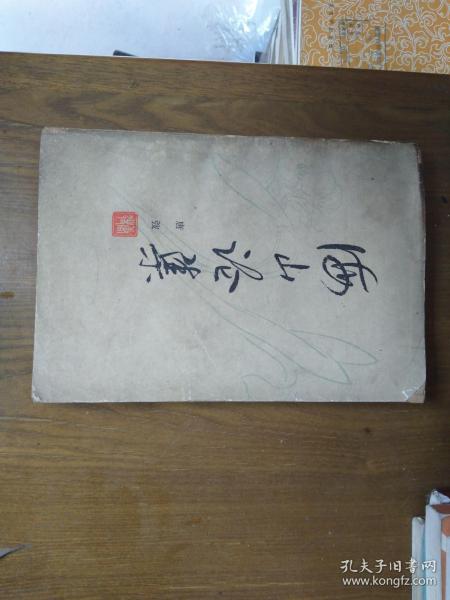 海山论集
唐弢
孔夫子旧书网
www.kongfz.com